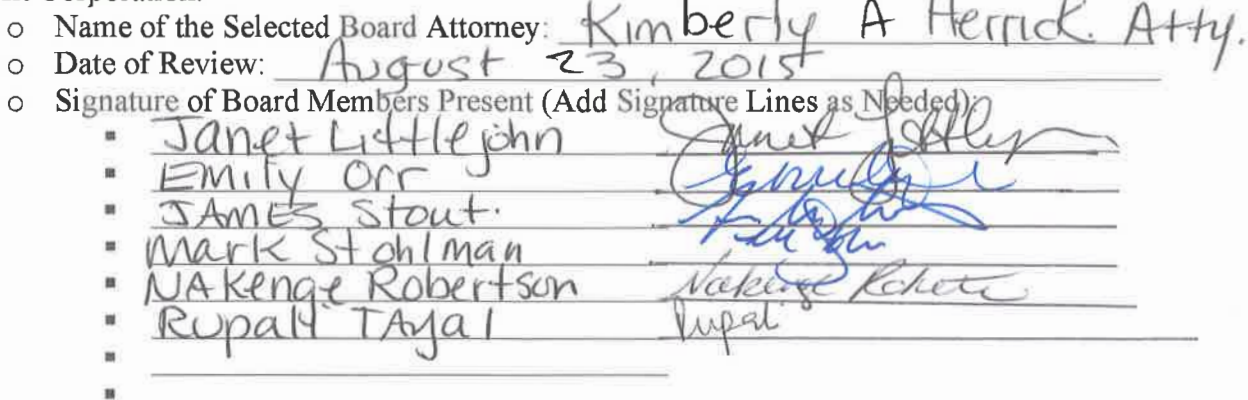 ○ Name of the Selected Board Attorney: Kimberly A Herrick. Atty.
○ Date of Review: August 23, 2015
○ Signature of Board Members Present (Add Signature Lines as Needed):
▪ Janet Littlejohn
▪ EMily Orr
▪ JAMES Stout.
▪ Mark Stohlman
▪ NAKenge Robertson Nakenge
▪ Rupali TAyal Rupali